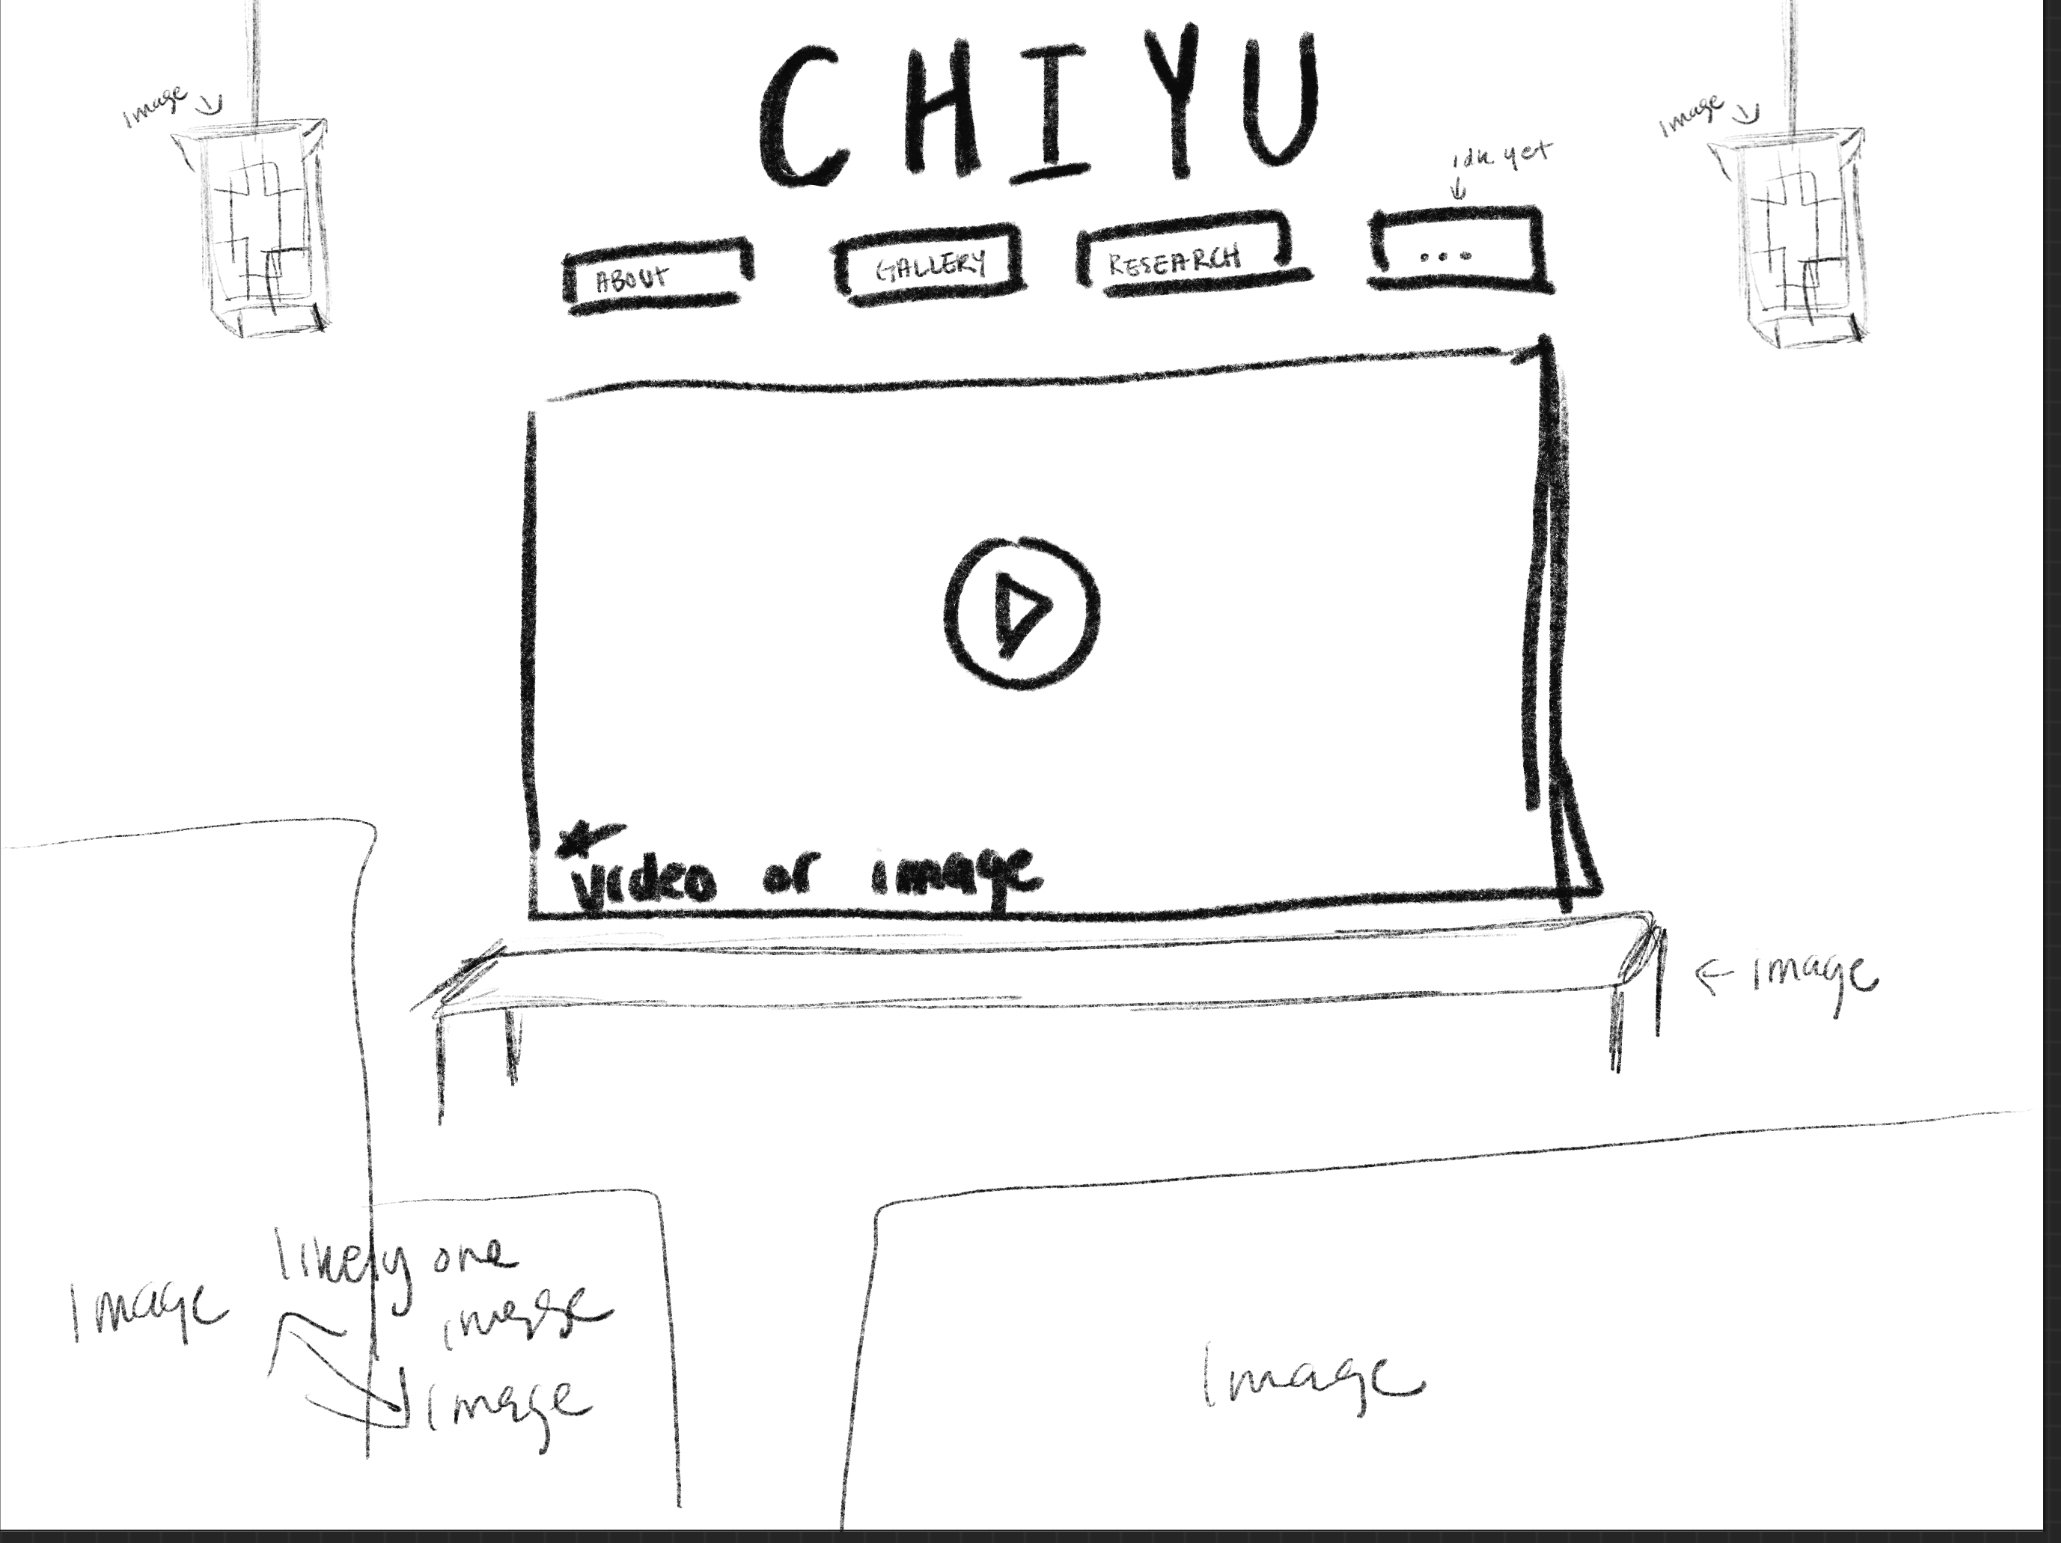 CHIYU
image
image
idk yet
ABOUT
GALLERY
RESEARCH
...
video or image
image
likely one
image
Image
image
Image